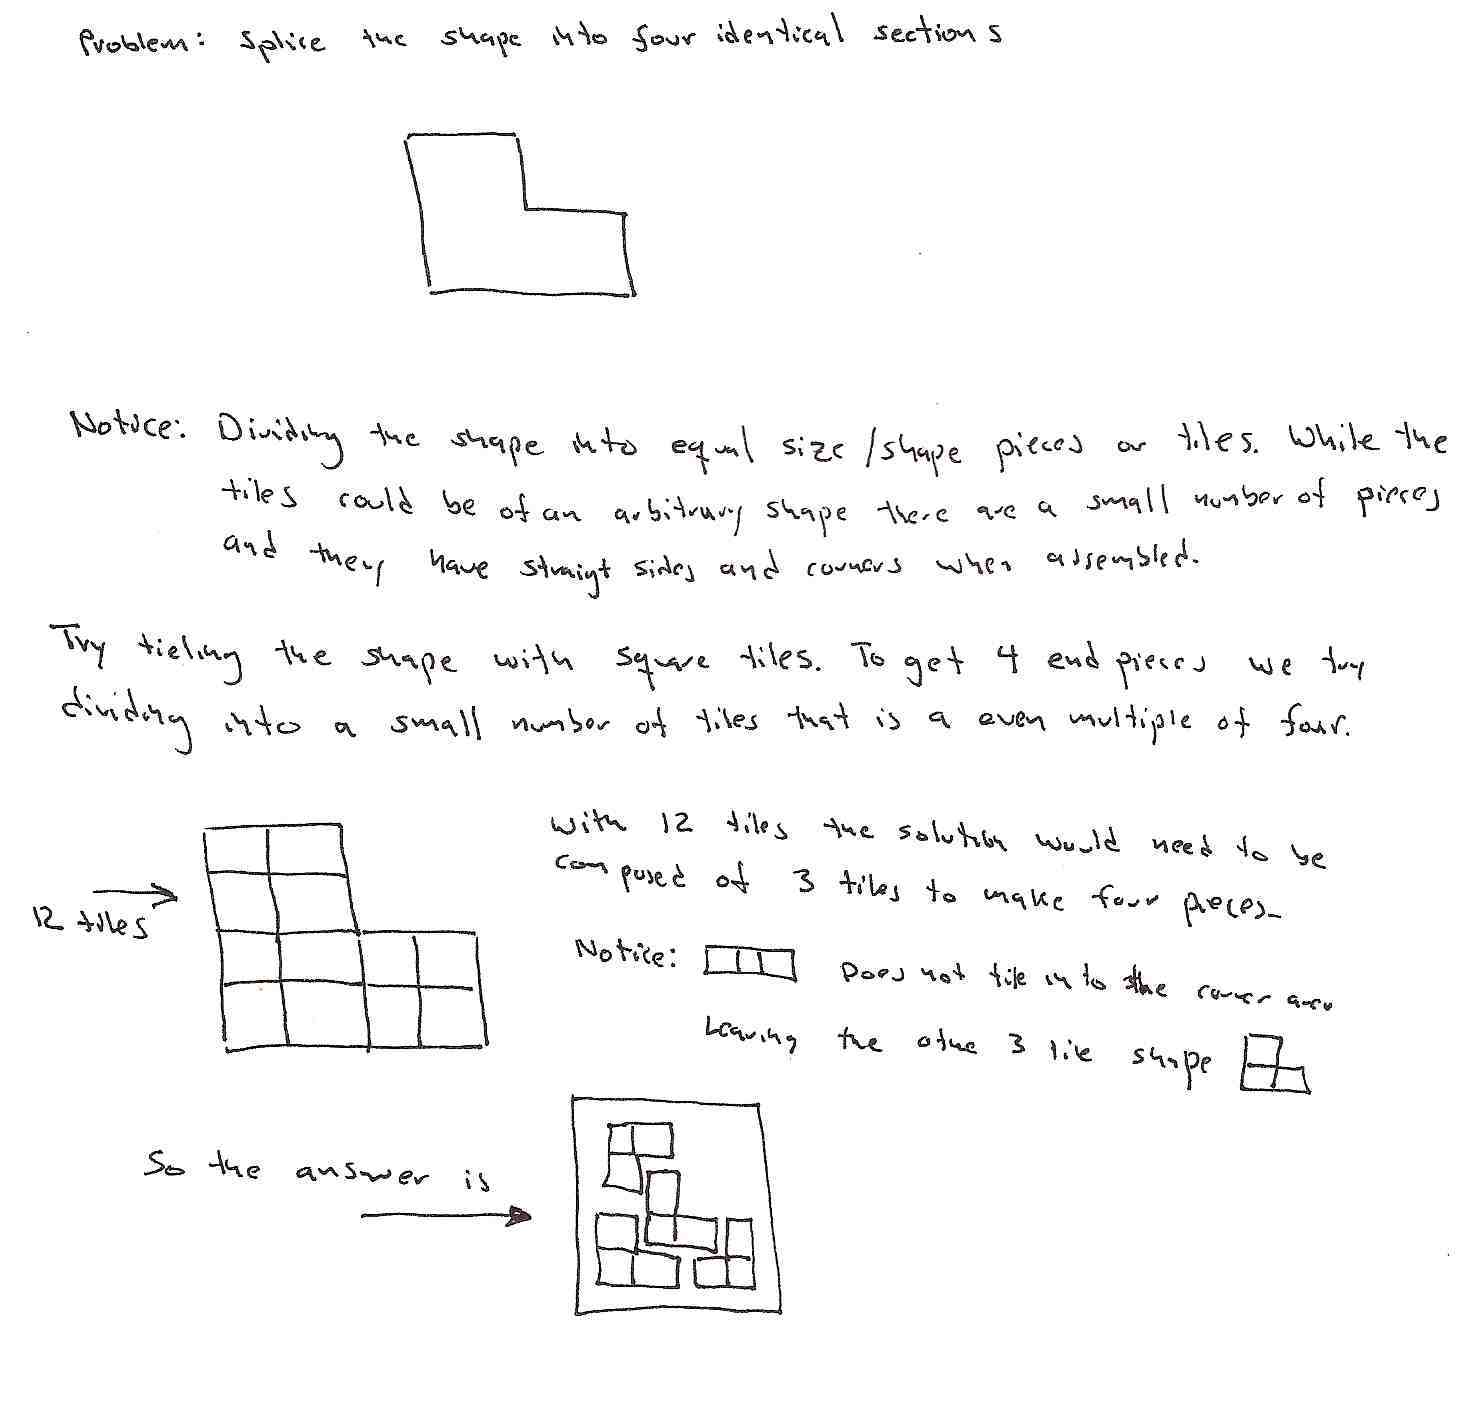 Problem: Splice the shape into four identical sections
Notice: Dividing the shape into equal size/shape pieces or tiles. While the
tiles could be of an arbitrary shape there are a small number of pieces
and they have straigt sides and corners when assembled.
Try tieling the shape with square tiles. To get 4 end pieces we try
dividing into a small number of tiles that is a even multiple of four.
With 12 tiles the solution would need to be
composed of 3 tiles to make four pieces.
12 tiles
Notice: Does not tile into the corner area
Leaving the othe 3 tile shape
So the answer is